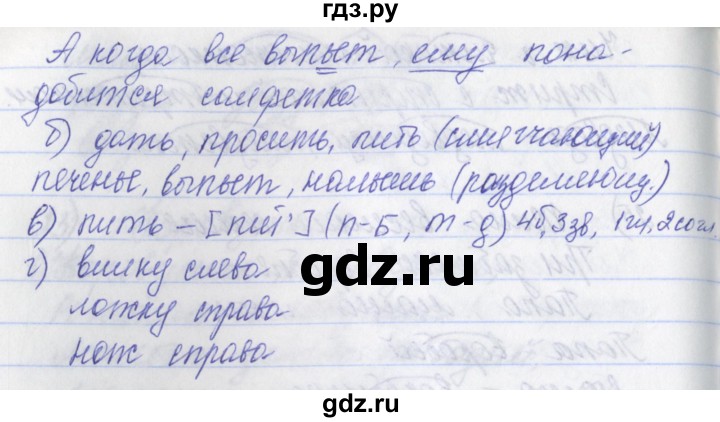 гдз.ру
А когда все выпьет, ему пона-
добится салфетка
б) дать, просить, пить (смягчающий)
печенье, выпьет, малышь (разделяющ.)
в) пить – [пит'] (п-Б, т-д) 4б, 3зв, 1гл, 2согл.
г) вилку слева
ложку справа
нож справа
гдз.ру
gdz.ru